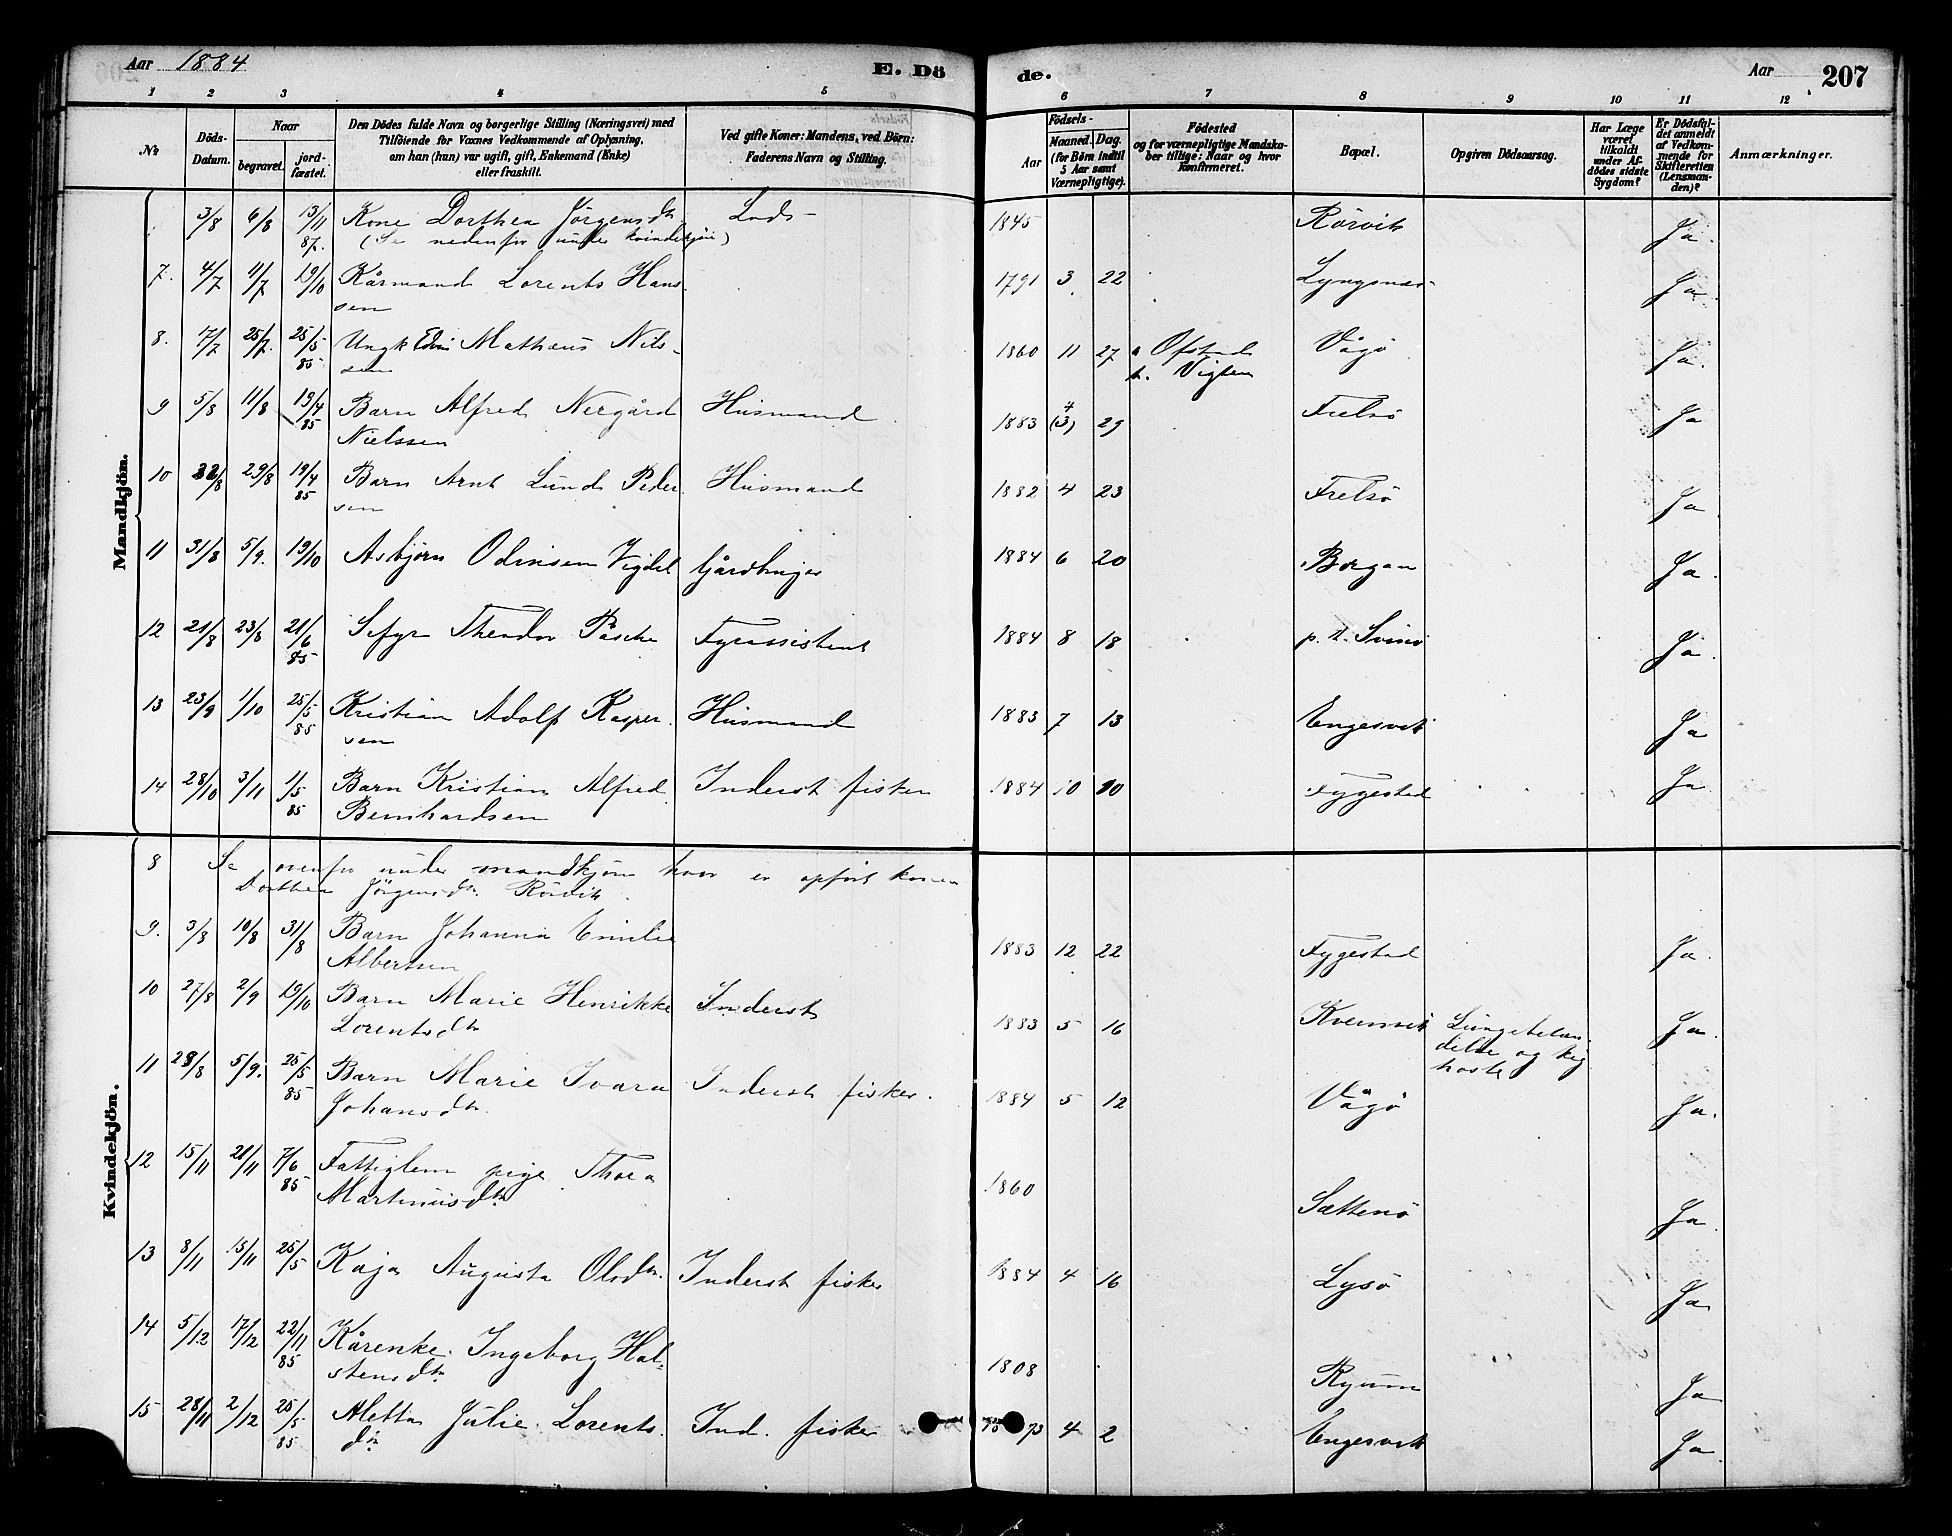 Aar 1884 E. Dö
de. Aar 207
1 2 3 4 5 6 7 8 9 10 11 12
№
Döds-Datum.
Naar
begravet.
jord-fæstet.
Den Dödes fulde Navn og borgerlige Stilling (Næringsvei) med
Tilföiende for Voxnes Vedkommende af Oplysning,
om han (hun) var ugift, gift, Enkemand (Enke)
eller fraskilt.
Ved gifte Koner: Mandens, ved Börn:
Faderens Navn og Stilling.
Födsels-
Aar
Maaned. Dag.
(for Börn indtil
5 Aar samt
Værnepligtige).
Födested
og for værnepligtige Mandska-
ber tillige: Naar og hvor
konfirmeret.
Bopæl.
Opgiven Dödsaarsag.
Har Læge
været
tilkaldt
under Af-
dödes sidste
Sygdom?
Er Dödsfal-
det anmeldt
af Vedkom-
mende for
Skifteretten
(Lensman-
den)?
Anmærkninger.
Mandkjön.
3/8 6/8 13/11 87. Kone Dorthea Jörgensdtr Lods 1845 Rörvik Ja.
(Se nedenfor under kvindekjön)
7. 4/7 11/7 19/10 Kårmand Lorents Hans- 1791 3 22 Lyngsnes Ja.
sen
8. 17/7 25/7. 25/5 85. Ungk Edvin Matheus Nils- 1860 11 27 Ofstad Vågö Ja.
sen Vigten
9 5/8 11/8 19/4 85 Barn Alfred Nergård Husmand 1883 4 (3) 29 Frelsö Ja
Nielssen
10 22/8 29/8 19/4 85 Barn Arnt Lund Peder Husmand 1882 4 23 Frelsö Ja.
sen
11 31/8 5/9. 19/10 Asbjörn Odinsen Vigdel Gårdbruger 1884 6 20 Borgan Ja.
12 21/8 23/8 21/6 85 Sefyr Theodor Pasche Fyrassistent 1884 8 18 p. t. Svinö Ja.
13 23/9 1/10 25/5 85 Kristian Adolf Kasper Husmand 1883 7 13 Engesvik Ja
sen
14 28/10 3/11 1/5 85 Barn Kristian Alfred Inderst fisker 1884 10 10 Fyggestad Ja
Bernhardsen
Kvindekjön.
8 Se ovenfor under mandkjön hvor er opfört konen
Dorthea Jörgensdtr Rörvik.
9. 3/8 10/8 31/8 Barn Johanna Emilie 1883 12 22 Fyggestad Ja.
Albertsen
10 27/8 2/9 19/10 Barn Marie Henrikke Inderst 1883 5 16 Kvernvik Lungebetæn- Ja.
Lorentsdtr delse og kig
hoste
11 28/8 5/9. 25/5 85 Barn Marie Ivara Inderst fisker. 1884 5 12 Vågö Ja.
Johansdtr
12 15/11 21/11 7/6 85 Fattiglem pige Thora 1860 Sættenö Ja.
Martinusdtr
13 8/11 15/11 25/5 Kaja Augusta Olsdtr. Inderst fisker 1884 4 16 Lysö Ja
14 5/12 17/12 22/11 85 Kårenke Ingeborg Hal- 1808 Ryum Ja
stensdtr
15 28/11 2/12 25/5 85 Aletta Julie Lorents Ind. fisker 73 4 2 Engesvik Ja.
dtr